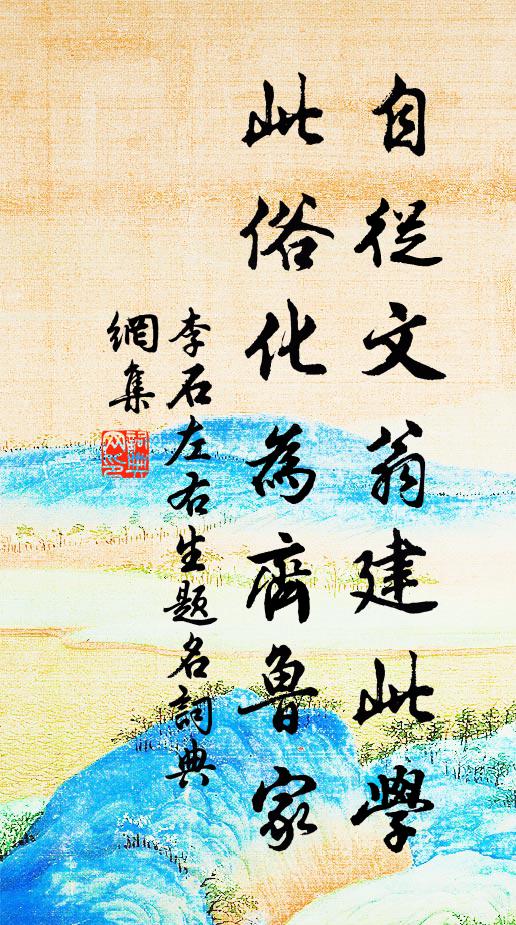 自從文翁建此學
此俗化為齊魯家
李石左右生題名詞典
網集